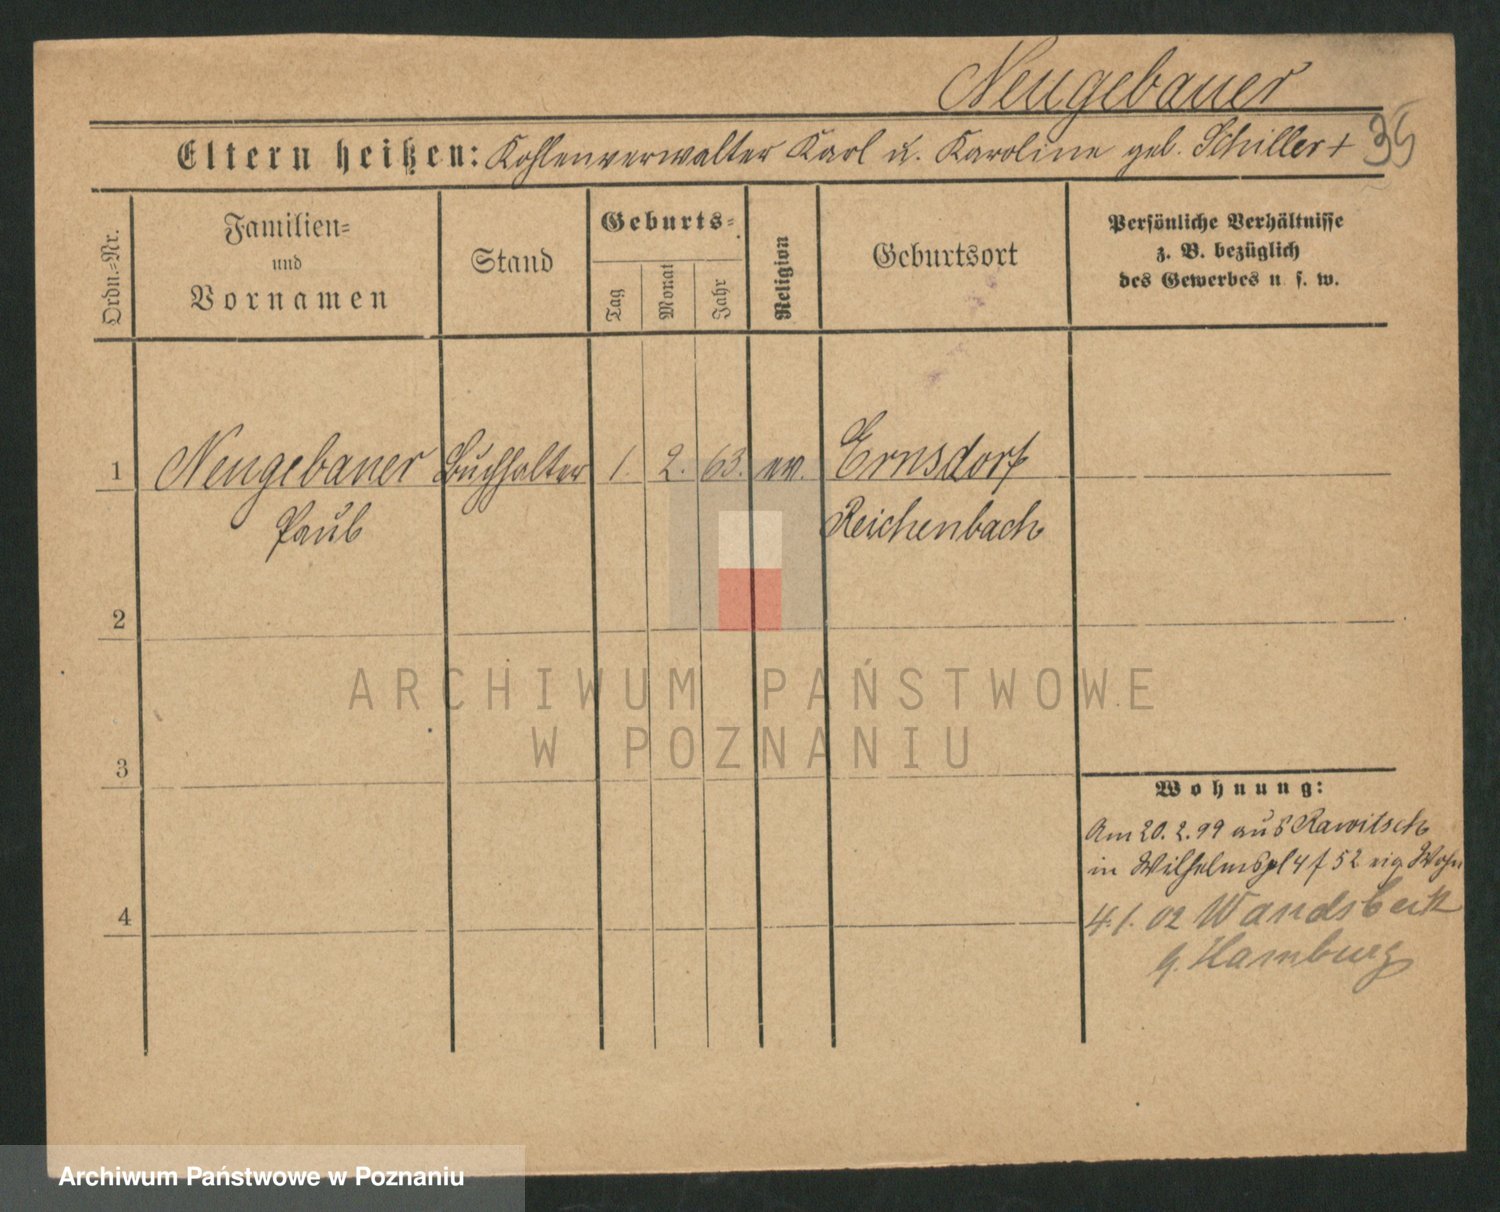 Neugebauer
Eltern heißen: Kohlenverwalter Karl u. Karoline geb. Schiller +
35
Ordn.=Nr.
Familien=
und
Vornamen
Stand
Geburts=
Tag
Monat
Jahr
Religion
Geburtsort
Persönliche Verhältnisse
z. B. bezüglich
des Gewerbes u. s. w.
1 Neugebauer Buchhalter 1. 2. 63. ev. Ernsdorf
Paul Reichenbach
2
ARCHIWUM PAŃSTWOWE
W POZNANIU
3
Wohnung:
Am 20.2.99 aus Rawitsch
in Wilhelmspl 4 f 52 eig Wohn
4
4.1.02 Wandsbeck
b. Hamburg
Archiwum Państwowe w Poznaniu